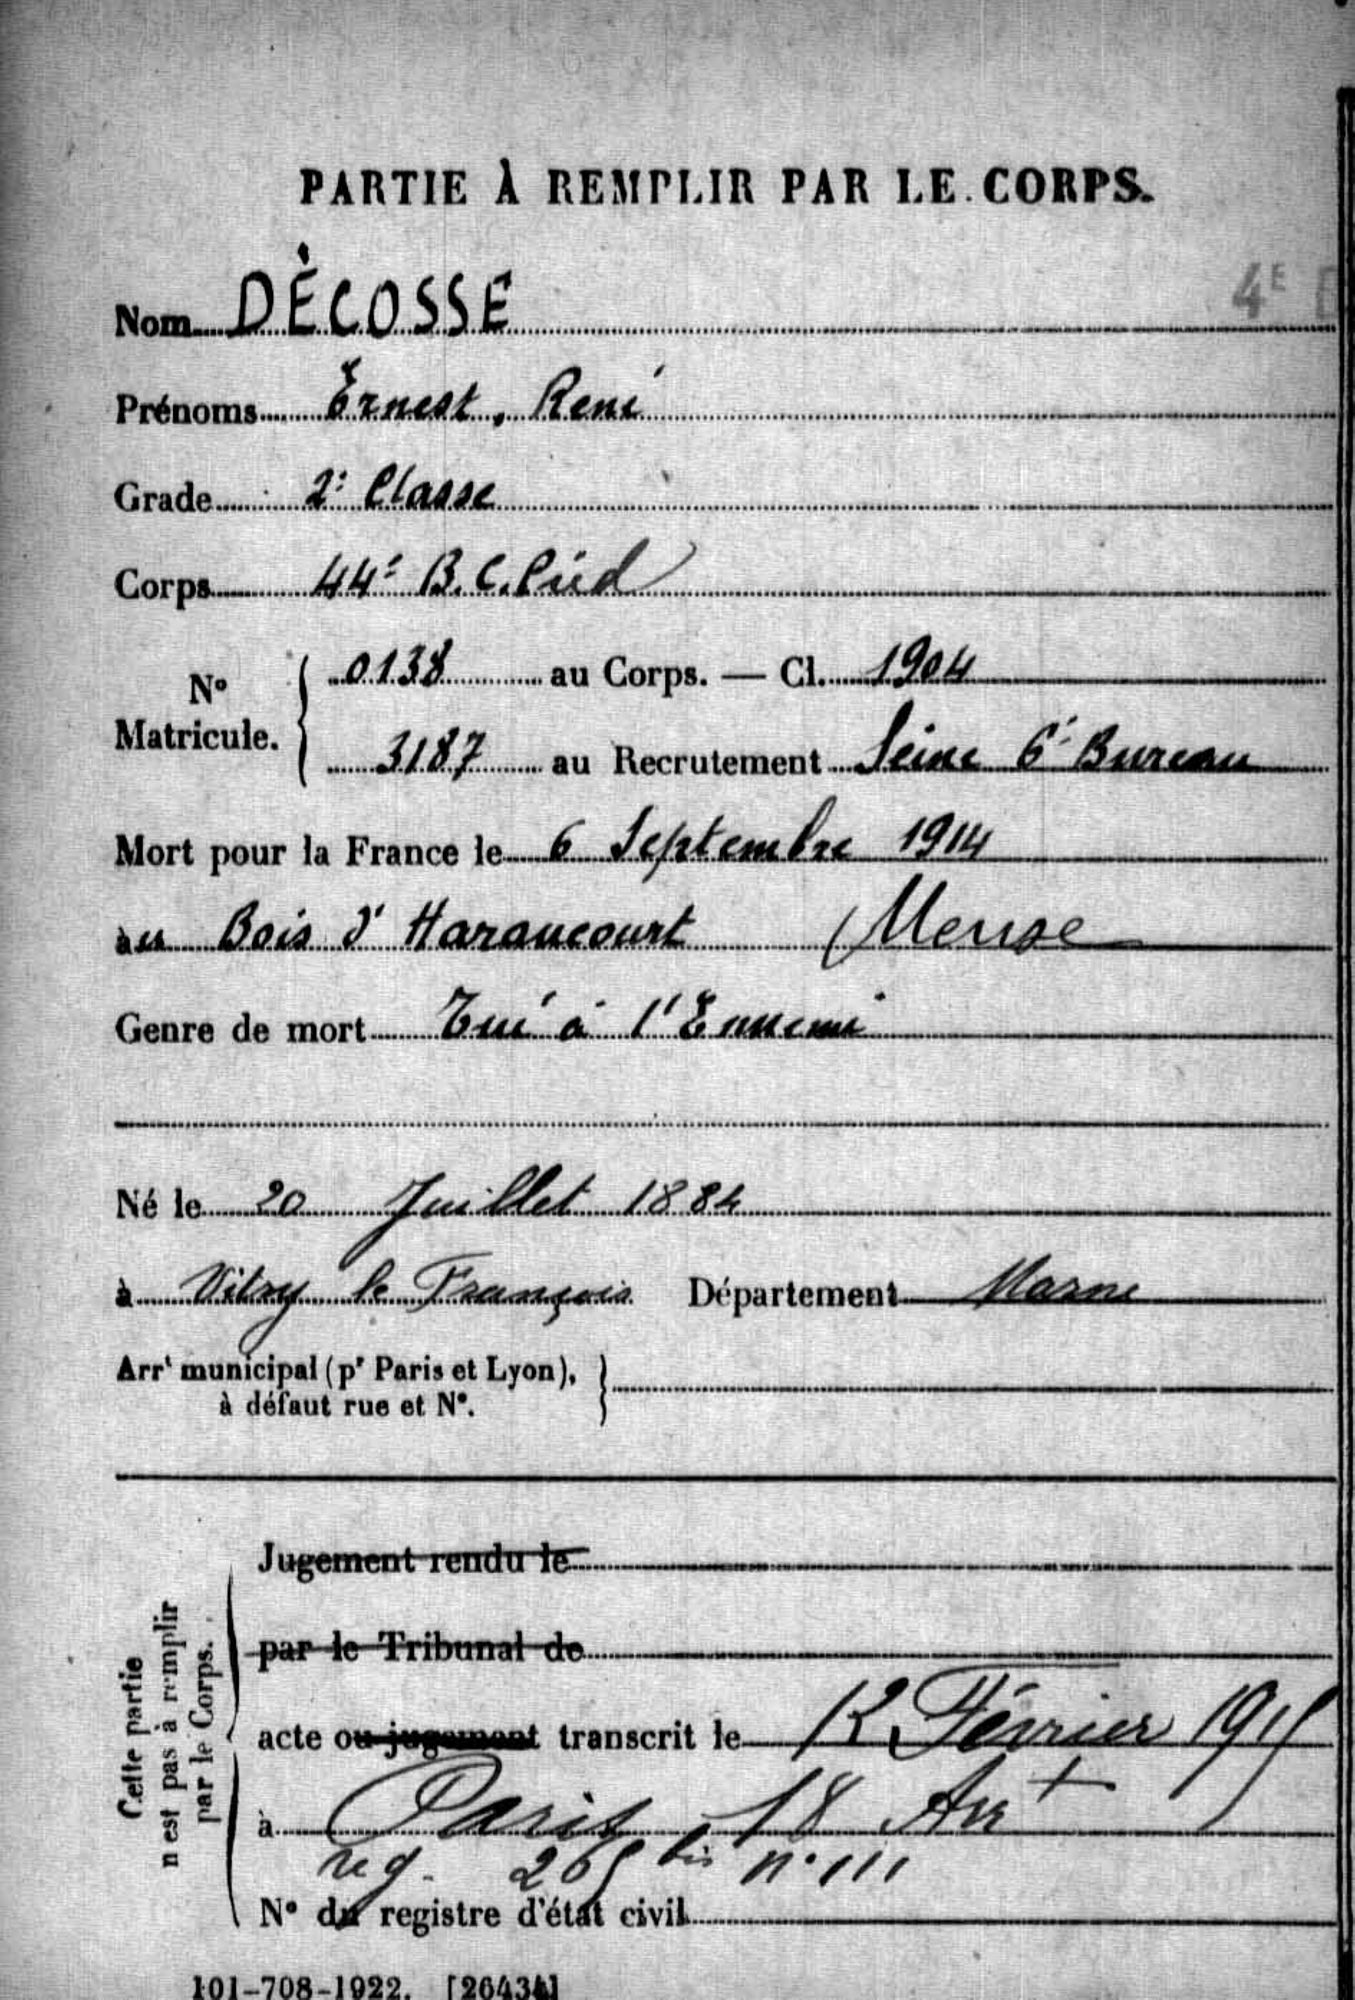 PARTIE À REMPLIR PAR LE CORPS.
4E
Nom DÉCOSSE
Prénoms Ernest, René
Grade 2e Classe
Corps 44e B.C. Pied
No Matricule. 0138 au Corps. — Cl. 1904
3187 au Recrutement Seine 6e Bureau
Mort pour la France le 6 Septembre 1914
au Bois d'Haraucourt (Meuse
Genre de mort Tué à l'Ennemi
Né le 20 Juillet 1884
à Vitry le François Département Marne
Arrt municipal (pr Paris et Lyon),
à défaut rue et No.
Cette partie
n'est pas à remplir
par le Corps.
Jugement rendu le
par le Tribunal de
acte ou jugement transcrit le 12 Février 1915
à Paris 18 Arrt
reg. 265 bis n° 111
No du registre d'état civil
101-708-1922. [26434]